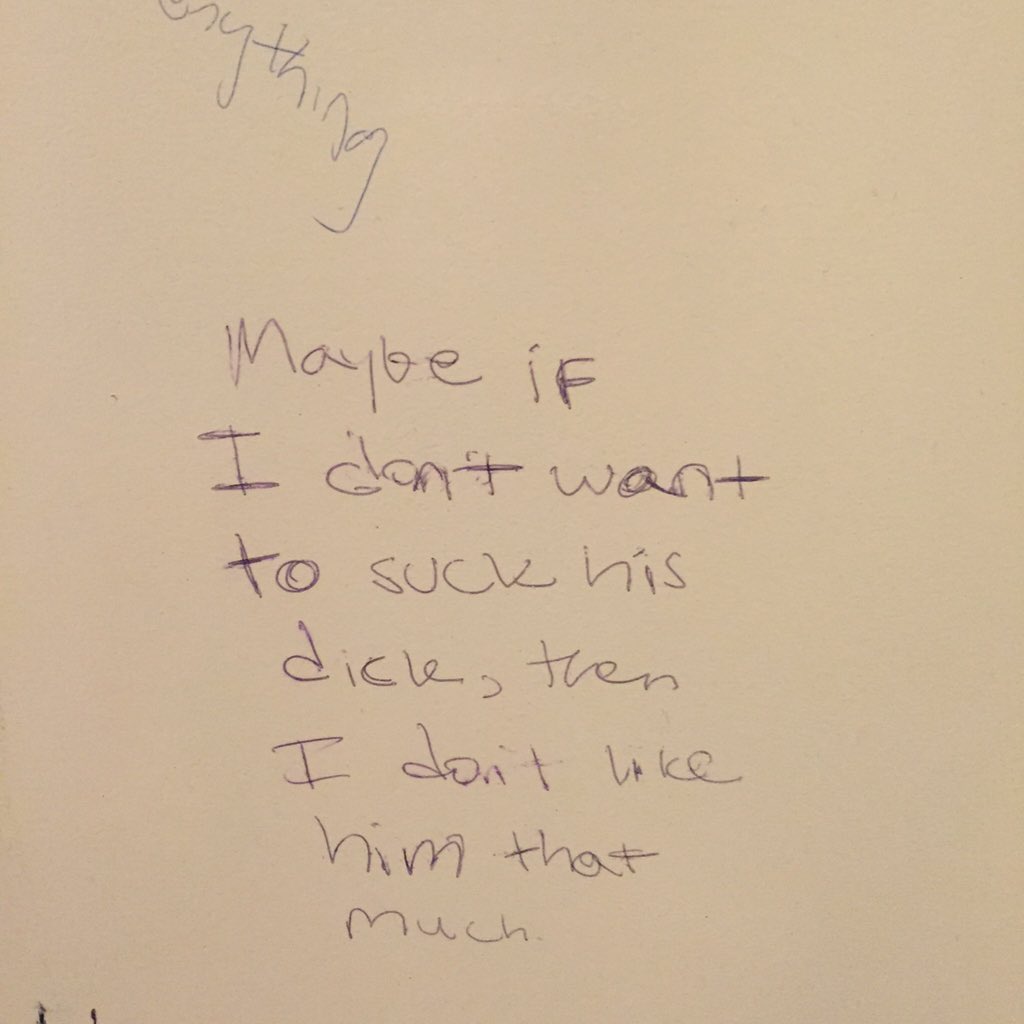 Maybe if
I don't want
to suck his
dick, then
I don't like
him that
much.